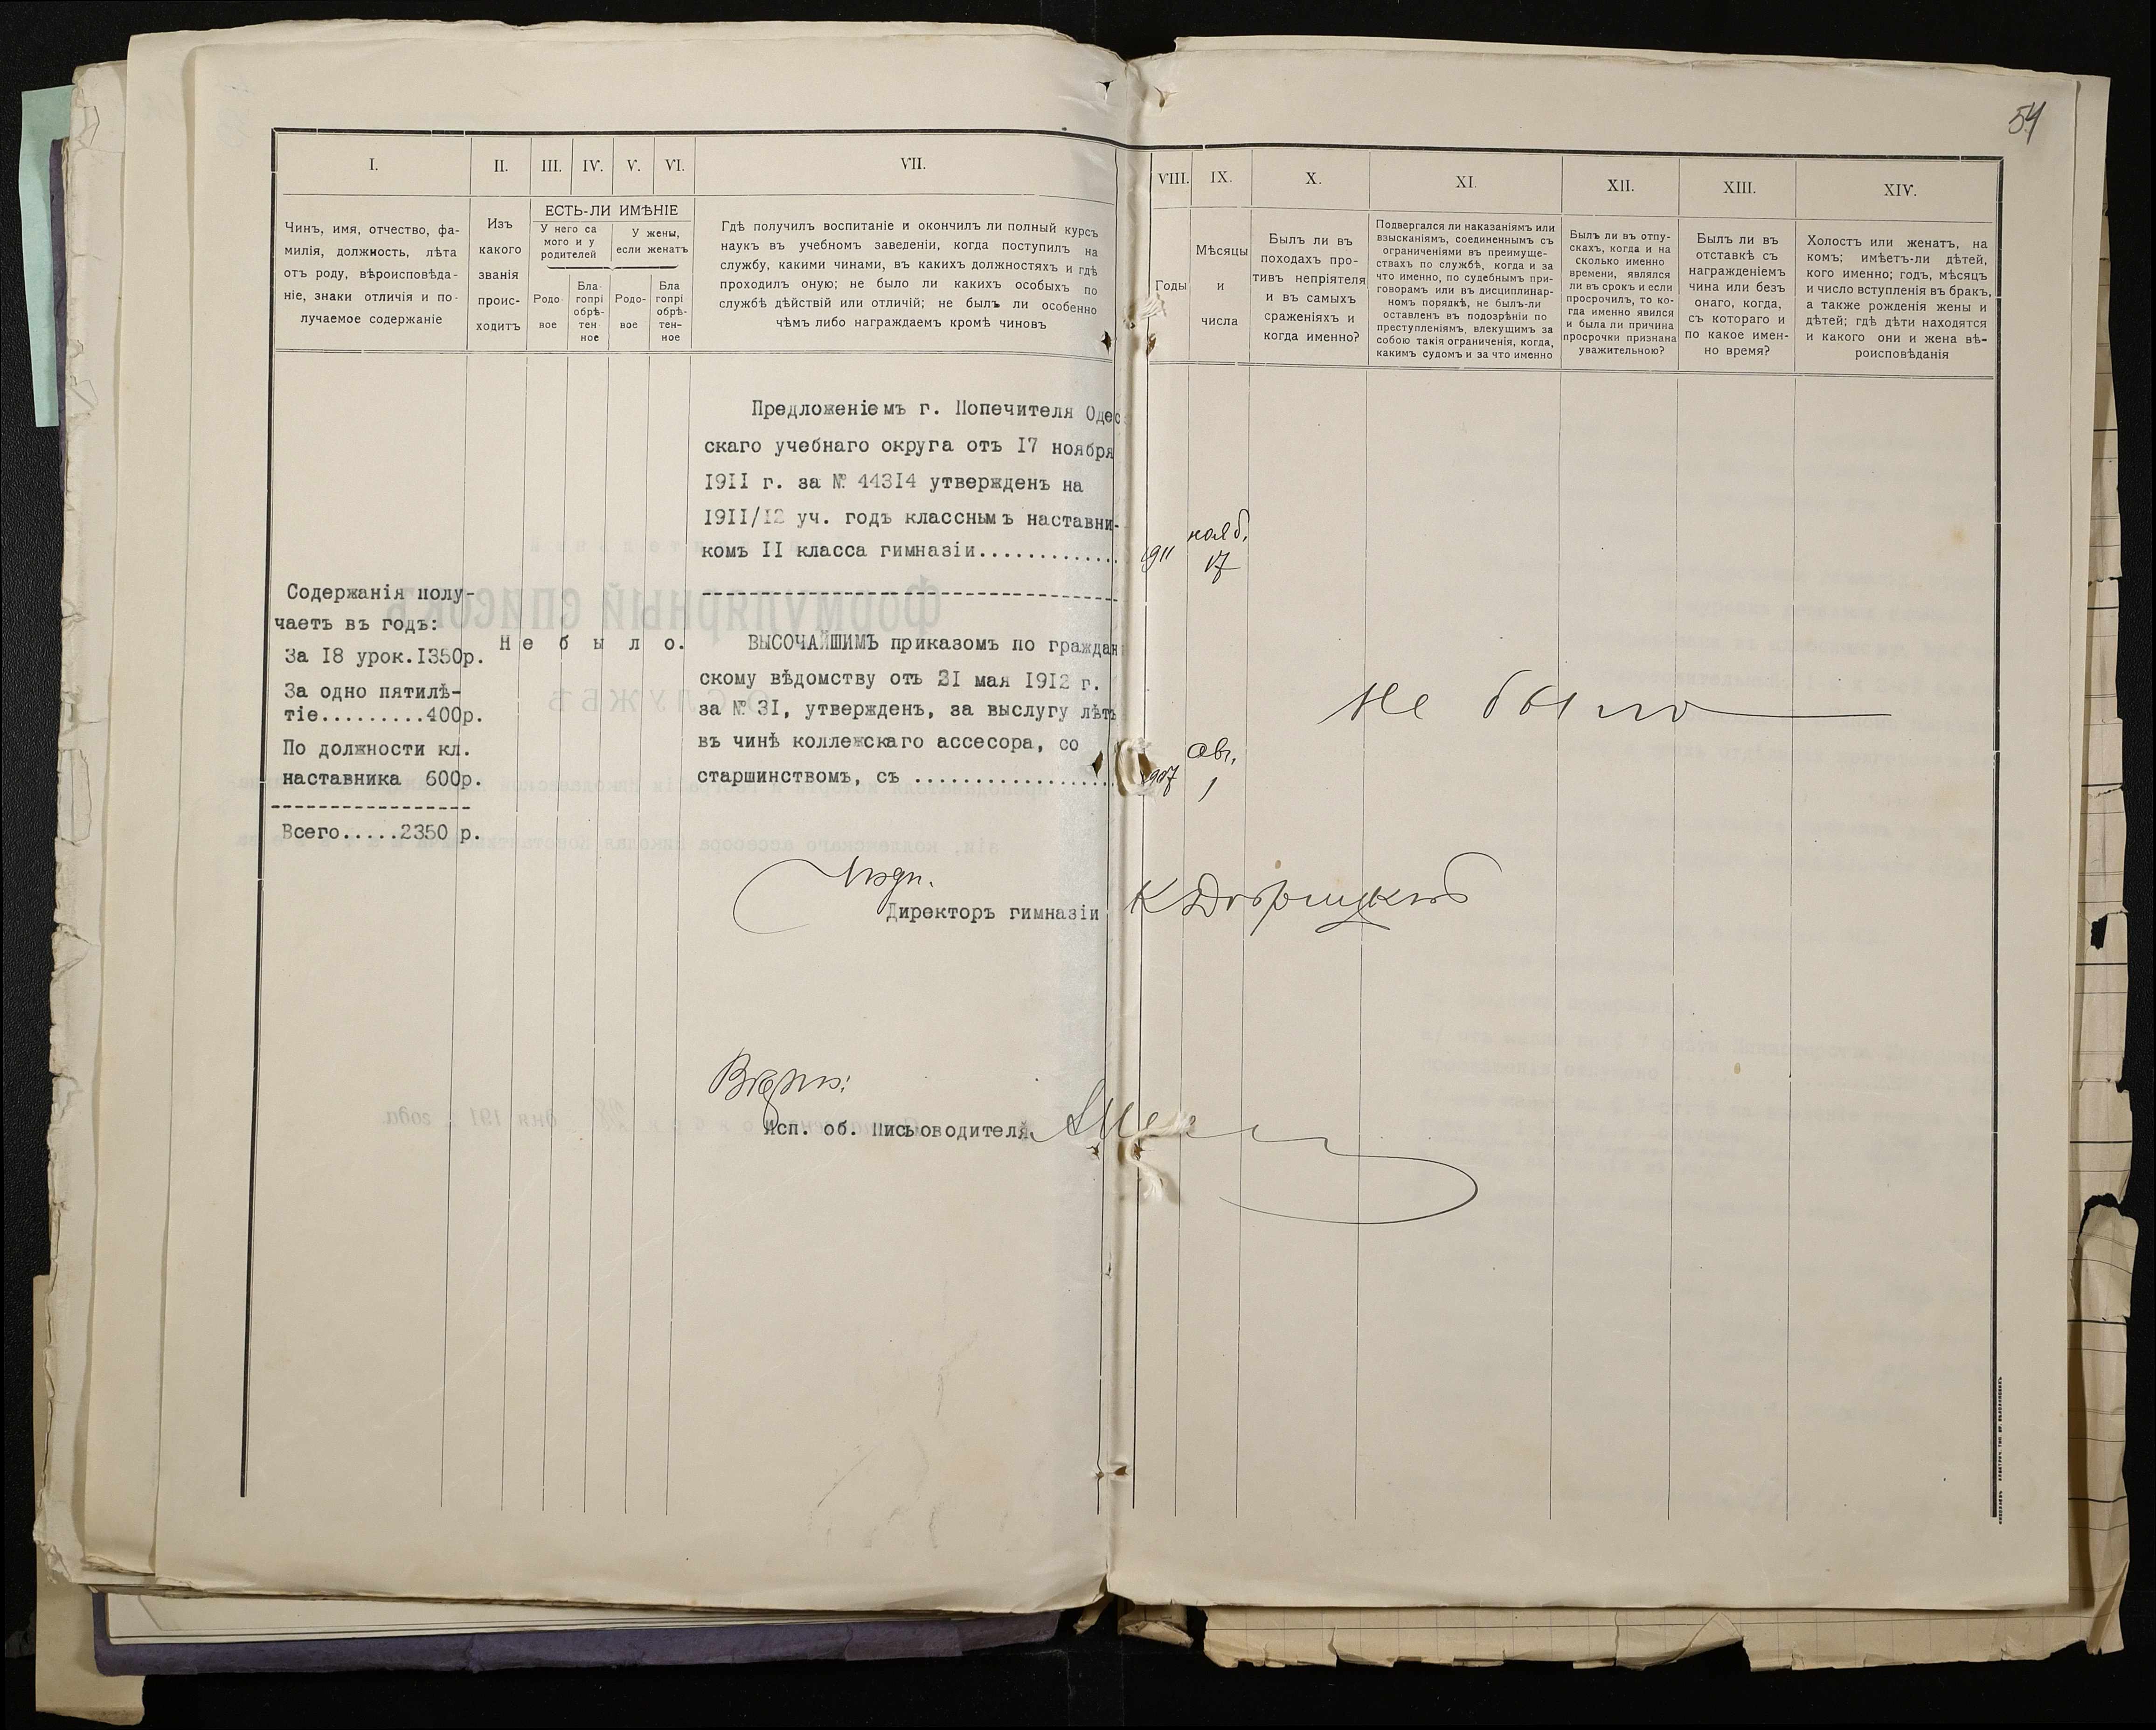 54
I.
II.
III.
IV.
V.
VI.
VII.
VIII.
IX.
X.
XI.
XII.
XIII.
XIV.
Чинъ, имя, отчество, фа-
милія, должность, лѣта
отъ роду, вѣроисповѣда-
ніе, знаки отличія и по-
лучаемое содержаніе
Изъ
какого
званія
проис-
ходитъ
ЕСТЬ-ЛИ ИМѢНІЕ
У него са
мого и у
родителей
У жены,
если женатъ
Родо-
вое
Бла-
гопрі
обрѣ-
тен-
ное
Родо-
вое
Бла
гопрі
обрѣ-
тен-
ное
Гдѣ получилъ воспитаніе и окончилъ ли полный курсъ
наукъ въ учебномъ заведеніи, когда поступилъ на
службу, какими чинами, въ какихъ должностяхъ и гдѣ
проходилъ оную; не было ли какихъ особыхъ по
службѣ дѣйствій или отличій; не былъ ли особенно
чѣмъ либо награждаемъ кромѣ чиновъ
Годы
Мѣсяцы
и
числа
Былъ ли въ
походахъ про-
тивъ непріятеля
и въ самыхъ
сраженіяхъ и
когда именно?
Подвергался ли наказаніямъ или
взысканіямъ, соединеннымъ съ
ограниченіями въ преимуще-
ствахъ по службѣ, когда и за
что именно, по судебнымъ при-
говорамъ или въ дисциплинар-
номъ порядкѣ, не былъ-ли
оставленъ въ подозрѣніи по
преступленіямъ, влекущимъ за
собою такія ограниченія, когда,
какимъ судомъ и за что именно
Былъ ли въ отпу-
скахъ, когда и на
сколько именно
времени, являлся
ли въ срокъ и если
просрочилъ, то ко-
гда именно явился
и была ли причина
просрочки признана
уважительною?
Былъ ли въ
отставкѣ съ
награжденіемъ
чина или безъ
онаго, когда,
съ котораго и
по какое имен-
но время?
Холостъ или женатъ, на
комъ; имѣетъ-ли дѣтей,
кого именно; годъ, мѣсяцъ
и число вступленія въ бракъ,
а также рожденія жены и
дѣтей; гдѣ дѣти находятся
и какого они и жена вѣ-
роисповѣданія
Предложеніемъ г. Попечителя Одес
скаго учебнаго округа отъ I7 ноября
I9II г. за № 443I4 утвержденъ на
I9II/I2 уч. годъ класснымъ наставни-
комъ II класса гимназіи.............
1911
нояб.
17
Содержанія полу-
чаетъ въ годъ:
За I8 урок.I350р.
За одно пятилѣ-
тіе.........400р.
По должности кл.
наставника 600р.
Всего.....2350 р.
Не было.
ВЫСОЧАЙШИМЪ приказомъ по граждан
скому вѣдомству отъ 2I мая I9I2 г.
за № 3I, утвержденъ, за выслугу лѣтъ
въ чинѣ коллежскаго ассесора, со
старшинствомъ, съ ...................
1907
авг.
1
Не было
Подп.
Директоръ гимназіи
Вѣрно:
Исп. об. Письоводителя